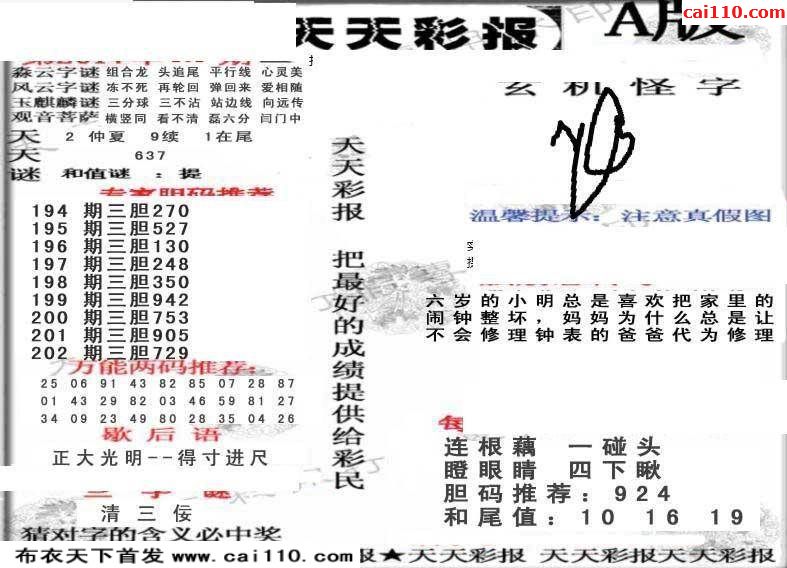 cai110.com
天天彩报 A版
淼云字谜 组合龙 头追尾 平行线 心灵美
风云字谜 冻不死 再轮回 弹回来 爱相随
玉麒麟谜 三分球 三不沾 站边线 向远传
观音菩萨 横竖同 看不清 磊六分 闫门中
天 2 仲夏 9续 1在尾
天 637
谜 和值谜 : 提
专家胆码推荐
194 期三胆270
195 期三胆527
196 期三胆130
197 期三胆248
198 期三胆350
199 期三胆942
200 期三胆753
201 期三胆905
202 期三胆729
万能两码推荐:
25 06 91 43 82 85 07 28 87
01 43 29 82 03 46 59 81 27
34 09 23 49 80 28 35 04 26
歇后语
正大光明--得寸进尺
三字谜
清三佞
猜对字的含义必中奖
天天彩报 把最好的成绩提供给彩民
玄机怪字
温馨提示: 注意真假图
六岁的小明总是喜欢把家里的
闹钟整坏，妈妈为什么总是让
不会修理钟表的爸爸代为修理
连根藕 一碰头
瞪眼睛 四下瞅
胆码推荐: 924
和尾值: 10 16 19
布衣天下首发 www.cai110.com 报★天天彩报 天天彩报天天彩报